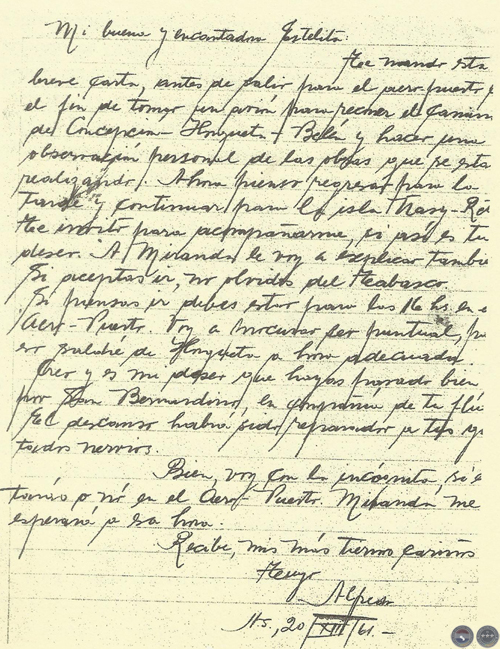 Mi buena y encantadora Estelita:
Te mando esta
breve carta, antes de salir para el aero-puerto a
el fin de tomar un avión para recorrer el camino
de Concepción - Horqueta - Bella y hacer una
observación personal de las obras que se esta
realizando. Ahora pienso regresar para la
tarde y continuar para la isla
Te invito para acompañarme, si así es tu
deseo. A Miranda le voy a explicar tambie
Si aceptas ir, no olvides del
Si piensas ir debes estar para las 16 hs. en e
Aero-Puerto. Voy a procurar ser puntual, p
eso saldré de Horqueta a hora adecuada.
Creo y es mi deseo que hayas pasado bien
por San Bernardino, en compañía de tu
El descanso habrá sido reparador a tus
nervios.
Bien, voy con la incógnita, si e
tarás o nó en el Aero-Puerto. Miranda me
esperará a esa hora.
Recibe, mis más tiernos cariños
Tuyo
Alfredo
As., 20/XII/61.-